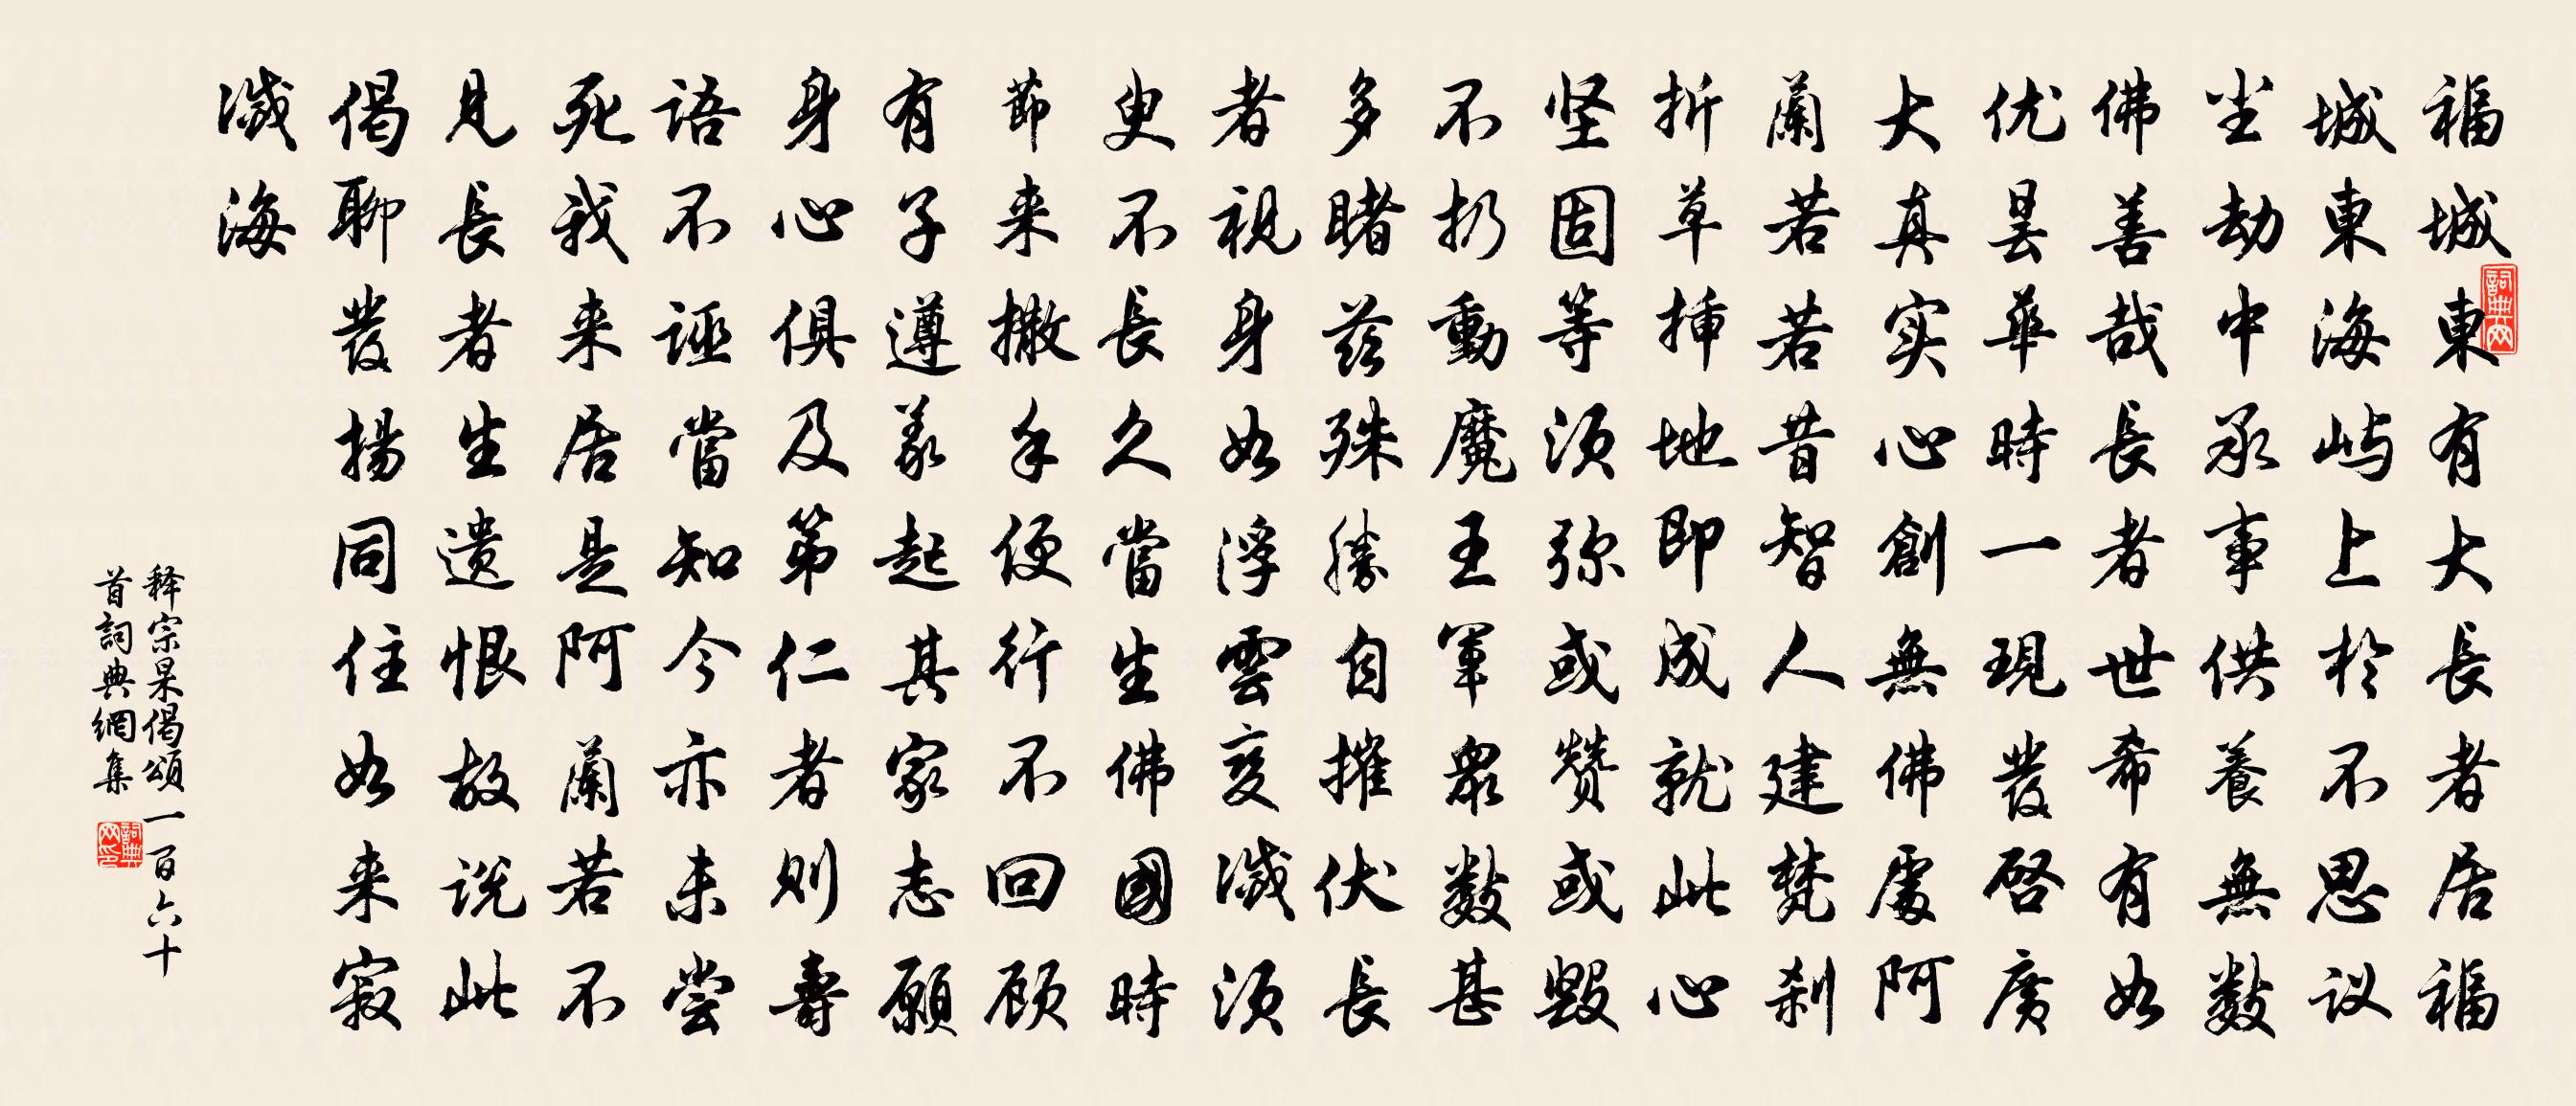 福城東有大長者居福
城東海屿上於不思议
尘劫中承事供養無数
佛善哉長者世希有如
优昙華時一現發啓廣
大真实心創無佛處阿
蘭若若昔智人建梵刹
折草插地即成就此心
坚固等须弥或赞或毁
不扔動魔王軍眾数甚
多睹茲殊勝自摧伏長
者視身如浮雲变滅须
臾不長久當生佛國時
節来撒手便行不回顾
有子遵義起其家志願
身心俱及第仁者則壽
語不诬當知今亦未尝
死我来居是阿蘭若不
見長者生遗恨故说此
偈聊發揚同住如来寂
滅海
释宗杲偈頌一百六十
首詞典網集
詞典网
詞典网印